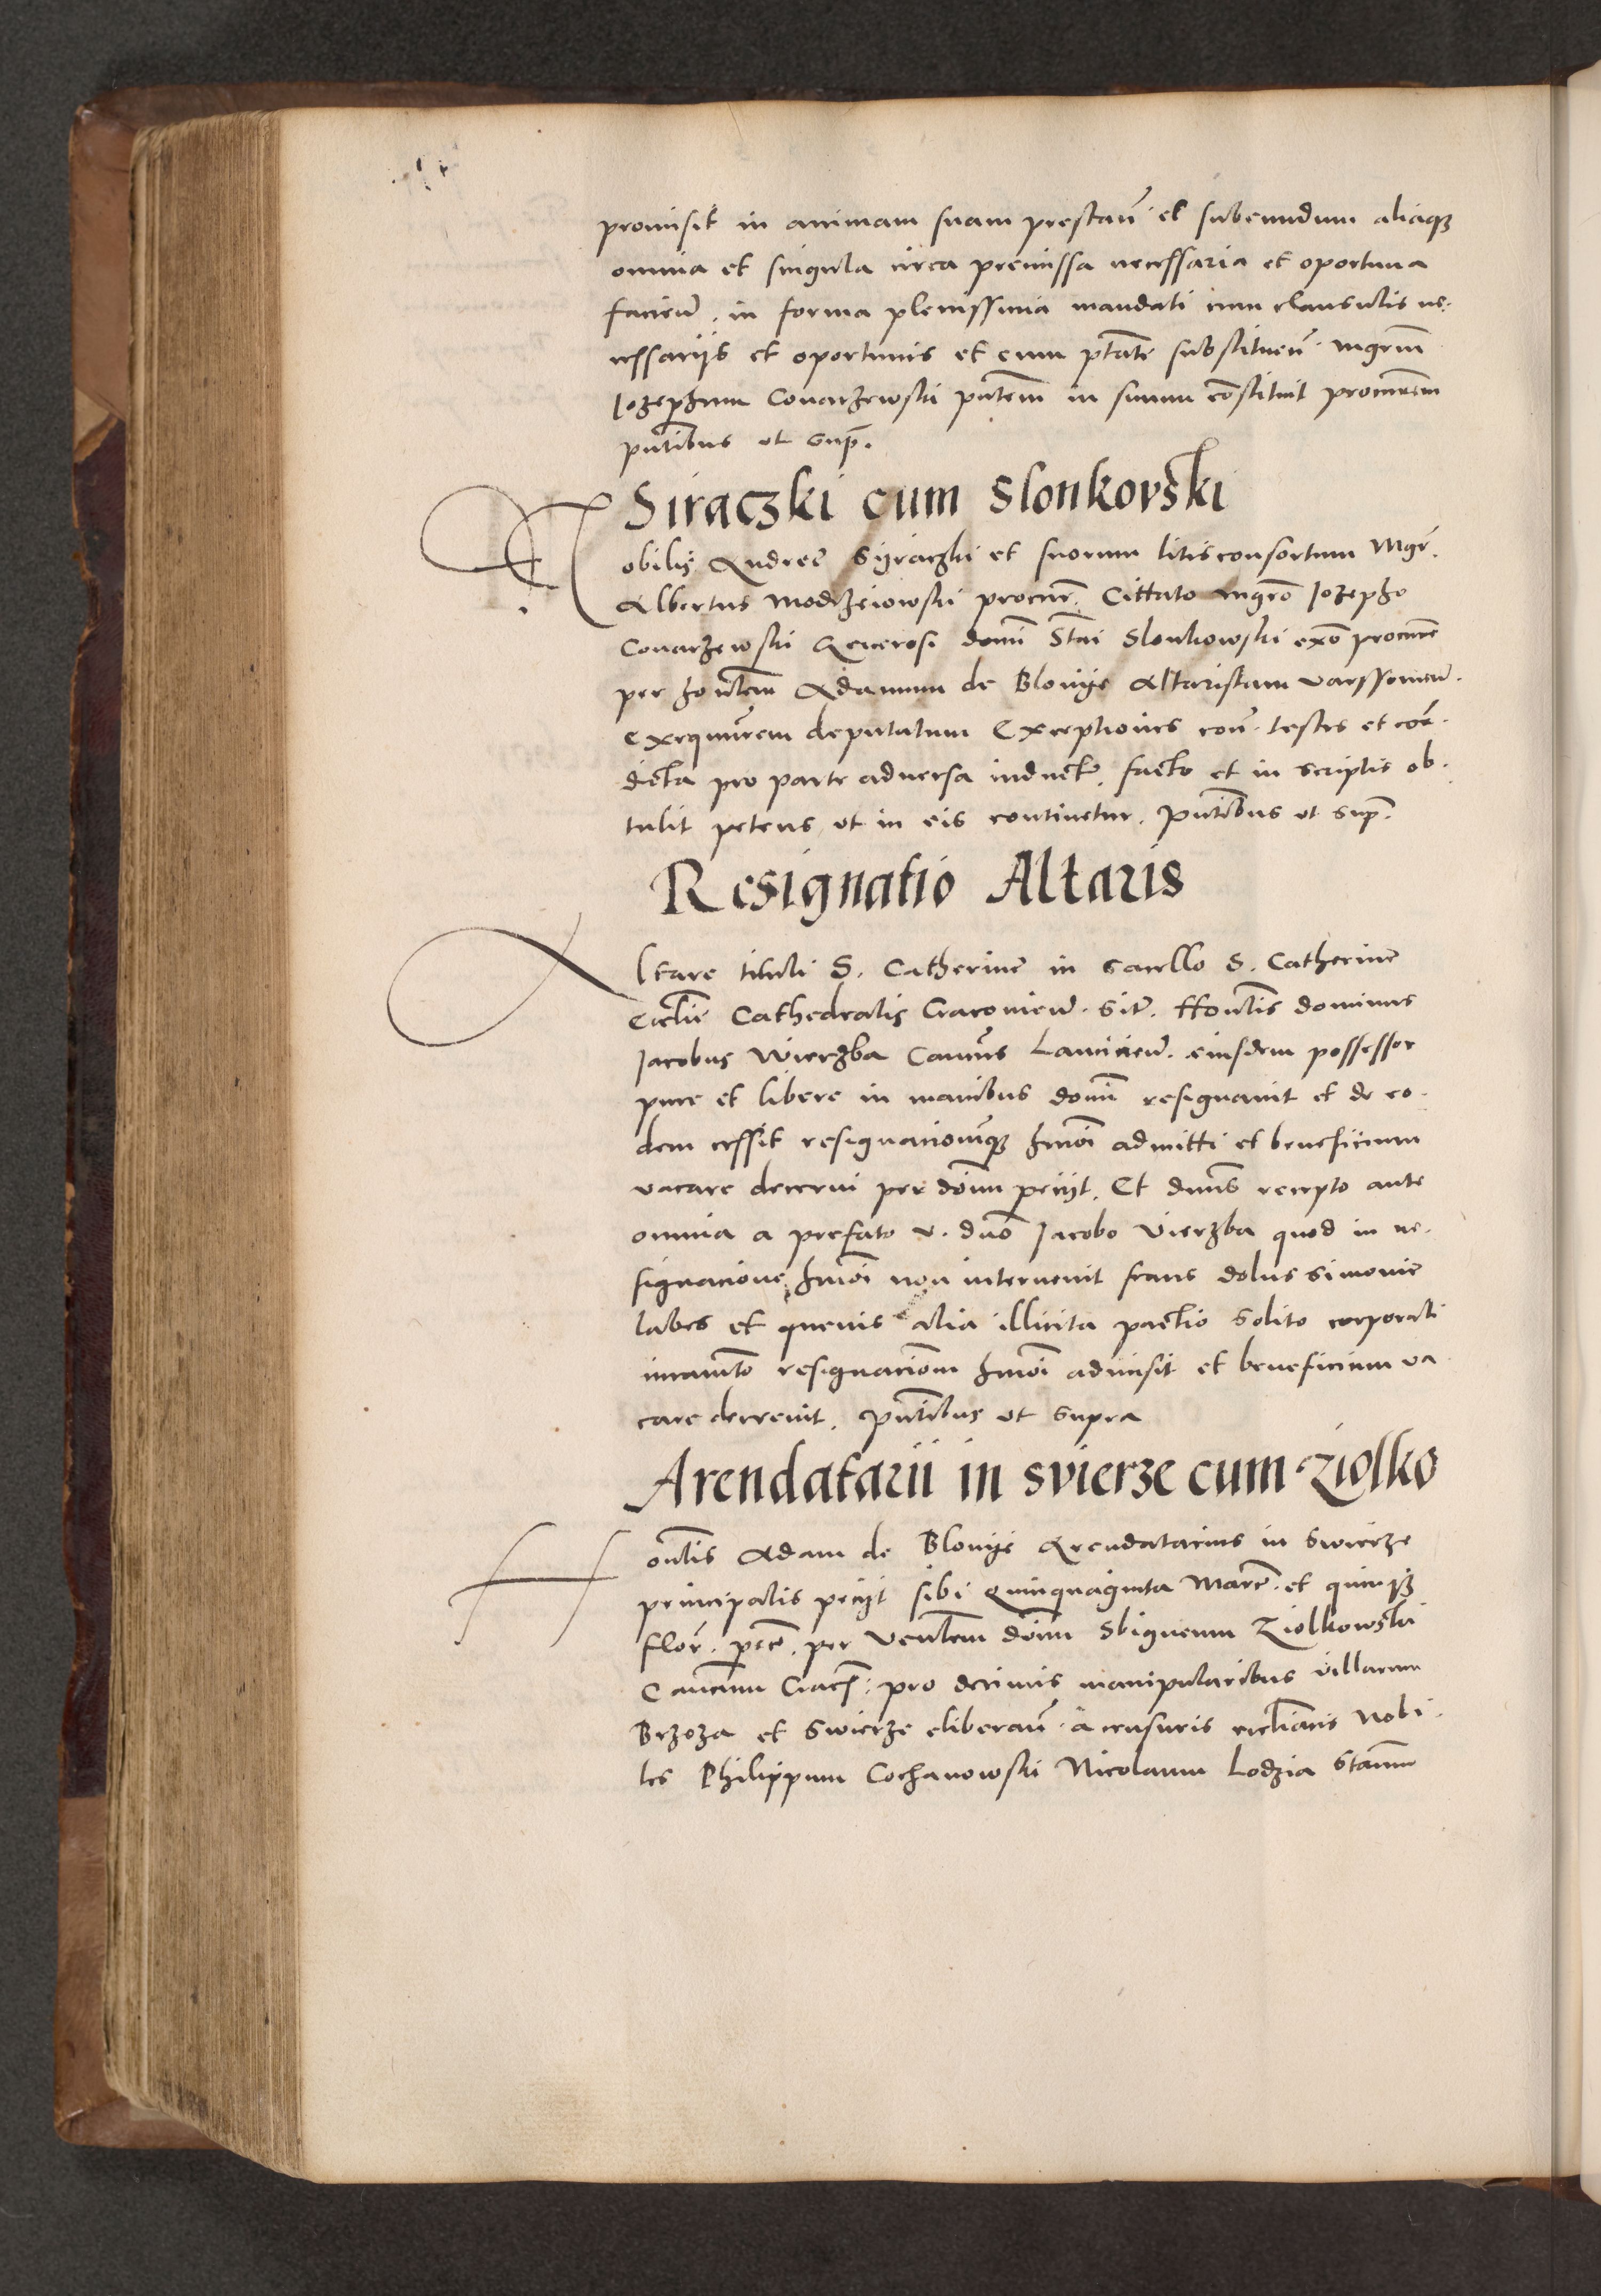 promisit in animam suam prestañ. et subeundum aliaq̃
omnia et singula circa premissa necessaria et oportuna
facieñ. in forma plenissima mandati cum clausulis ne-
cessarijs et oportunis et cum ptãte substitueñ. mgrũm
Iozephum Covarzewski pñtem in suum cõstituit procurem
pñtibus ut sup̃.
Siraczki cum Slonkovski
Nobilis Andreę Syraczki et suorum litisconsortum Mgr̃.
Albertus Modrzeiowski procur̃. Cittato mgrõ Iozepho
Covarzewski Generosi domĩ Stai Slonkowski ex° procure
per honlem Adamum de Blonye Altaristam varssovieñ.
exequutorem deputatum Exceptiones coñ. testes et eor̃.
dicta pro parte adversa induct̃. facto et in scriptis ob-
tulit petens ut in eis continetur. pñtibus ut sup̃.
Resignatio Altaris
Altare tituli S. Catherinę in sacello S. Catherinę
Ecclie Cathedralis Cracovieñ. sit̃. Honlis dominus
Iacobus Wierzba Canõus Lancicieñ. eiusdem possessor
pure et libere in manibus domĩ resignavit et de eo-
dem cessit resignacionemq̃ hmõi admitti et beneficium
vacare decerni per domũ peciit. Et dnũs recepto ante
omnia a prefato v. dnõ Iacobo Vierzba quod in re-
signacione hmõi non intervenit fraus dolus simonię
labes et quevis alia illicita pactio solito corporali
iuramto resignacionem hmõi admisit et beneficium va
care decrevit. pñtibus ut supra
Arendatarii in svierze cum Ziolko
Honlis Adam de Blonye Arendatarius in Swierze
principalis peciit sibi Quinquaginta Marc̃. et quinq̃
flor̃. pec̃. per Venlem domũ Sbigneum Ziolkowski
Canonum Crac̃. pro decimis manipularibus villarum
Brzoza et Swierze eliberañ. a censuris ecclãcis Nobi-
les Philippum Cochanowski Nicolaum Lodzia Stañum